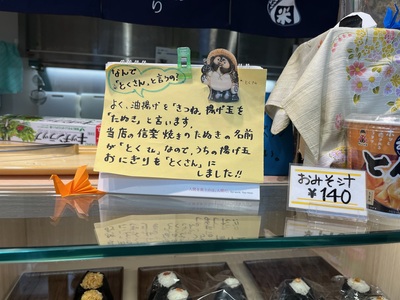 なんで
「とくさん」と言うの?
よく、油揚げを「きつね、揚げ玉を
「たぬき」と言います。
当店の信楽焼きのたぬきの名前
が「とくさん」なので、うちの揚げ玉
おにぎりを「とくさん」に
しました!!
おみそ汁
¥140
米
り